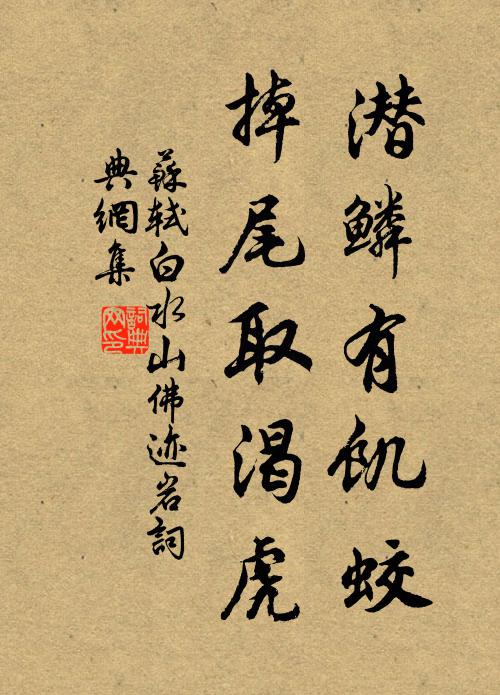 潜鳞有飢蛟
掉尾取渴虎
蘇軾白水山佛迹岩詞
典網集
詞典网印